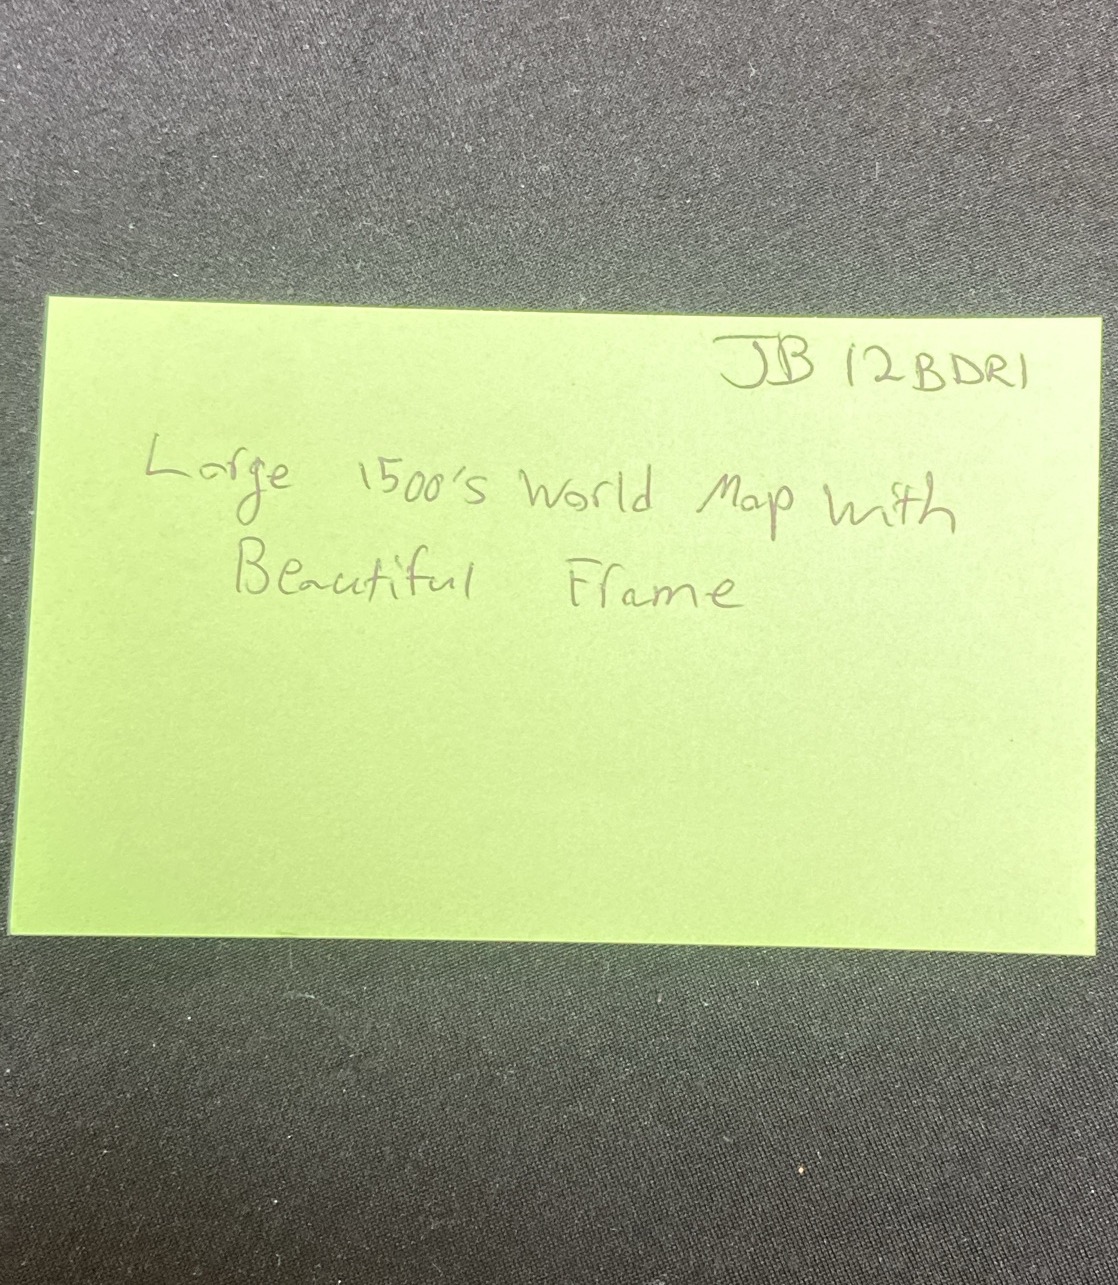 JB 12BDR1
Large 1500's World Map With
Beautiful Frame